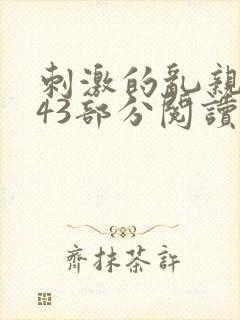 刺激的亂親
43部分閱讀
齊抹茶許